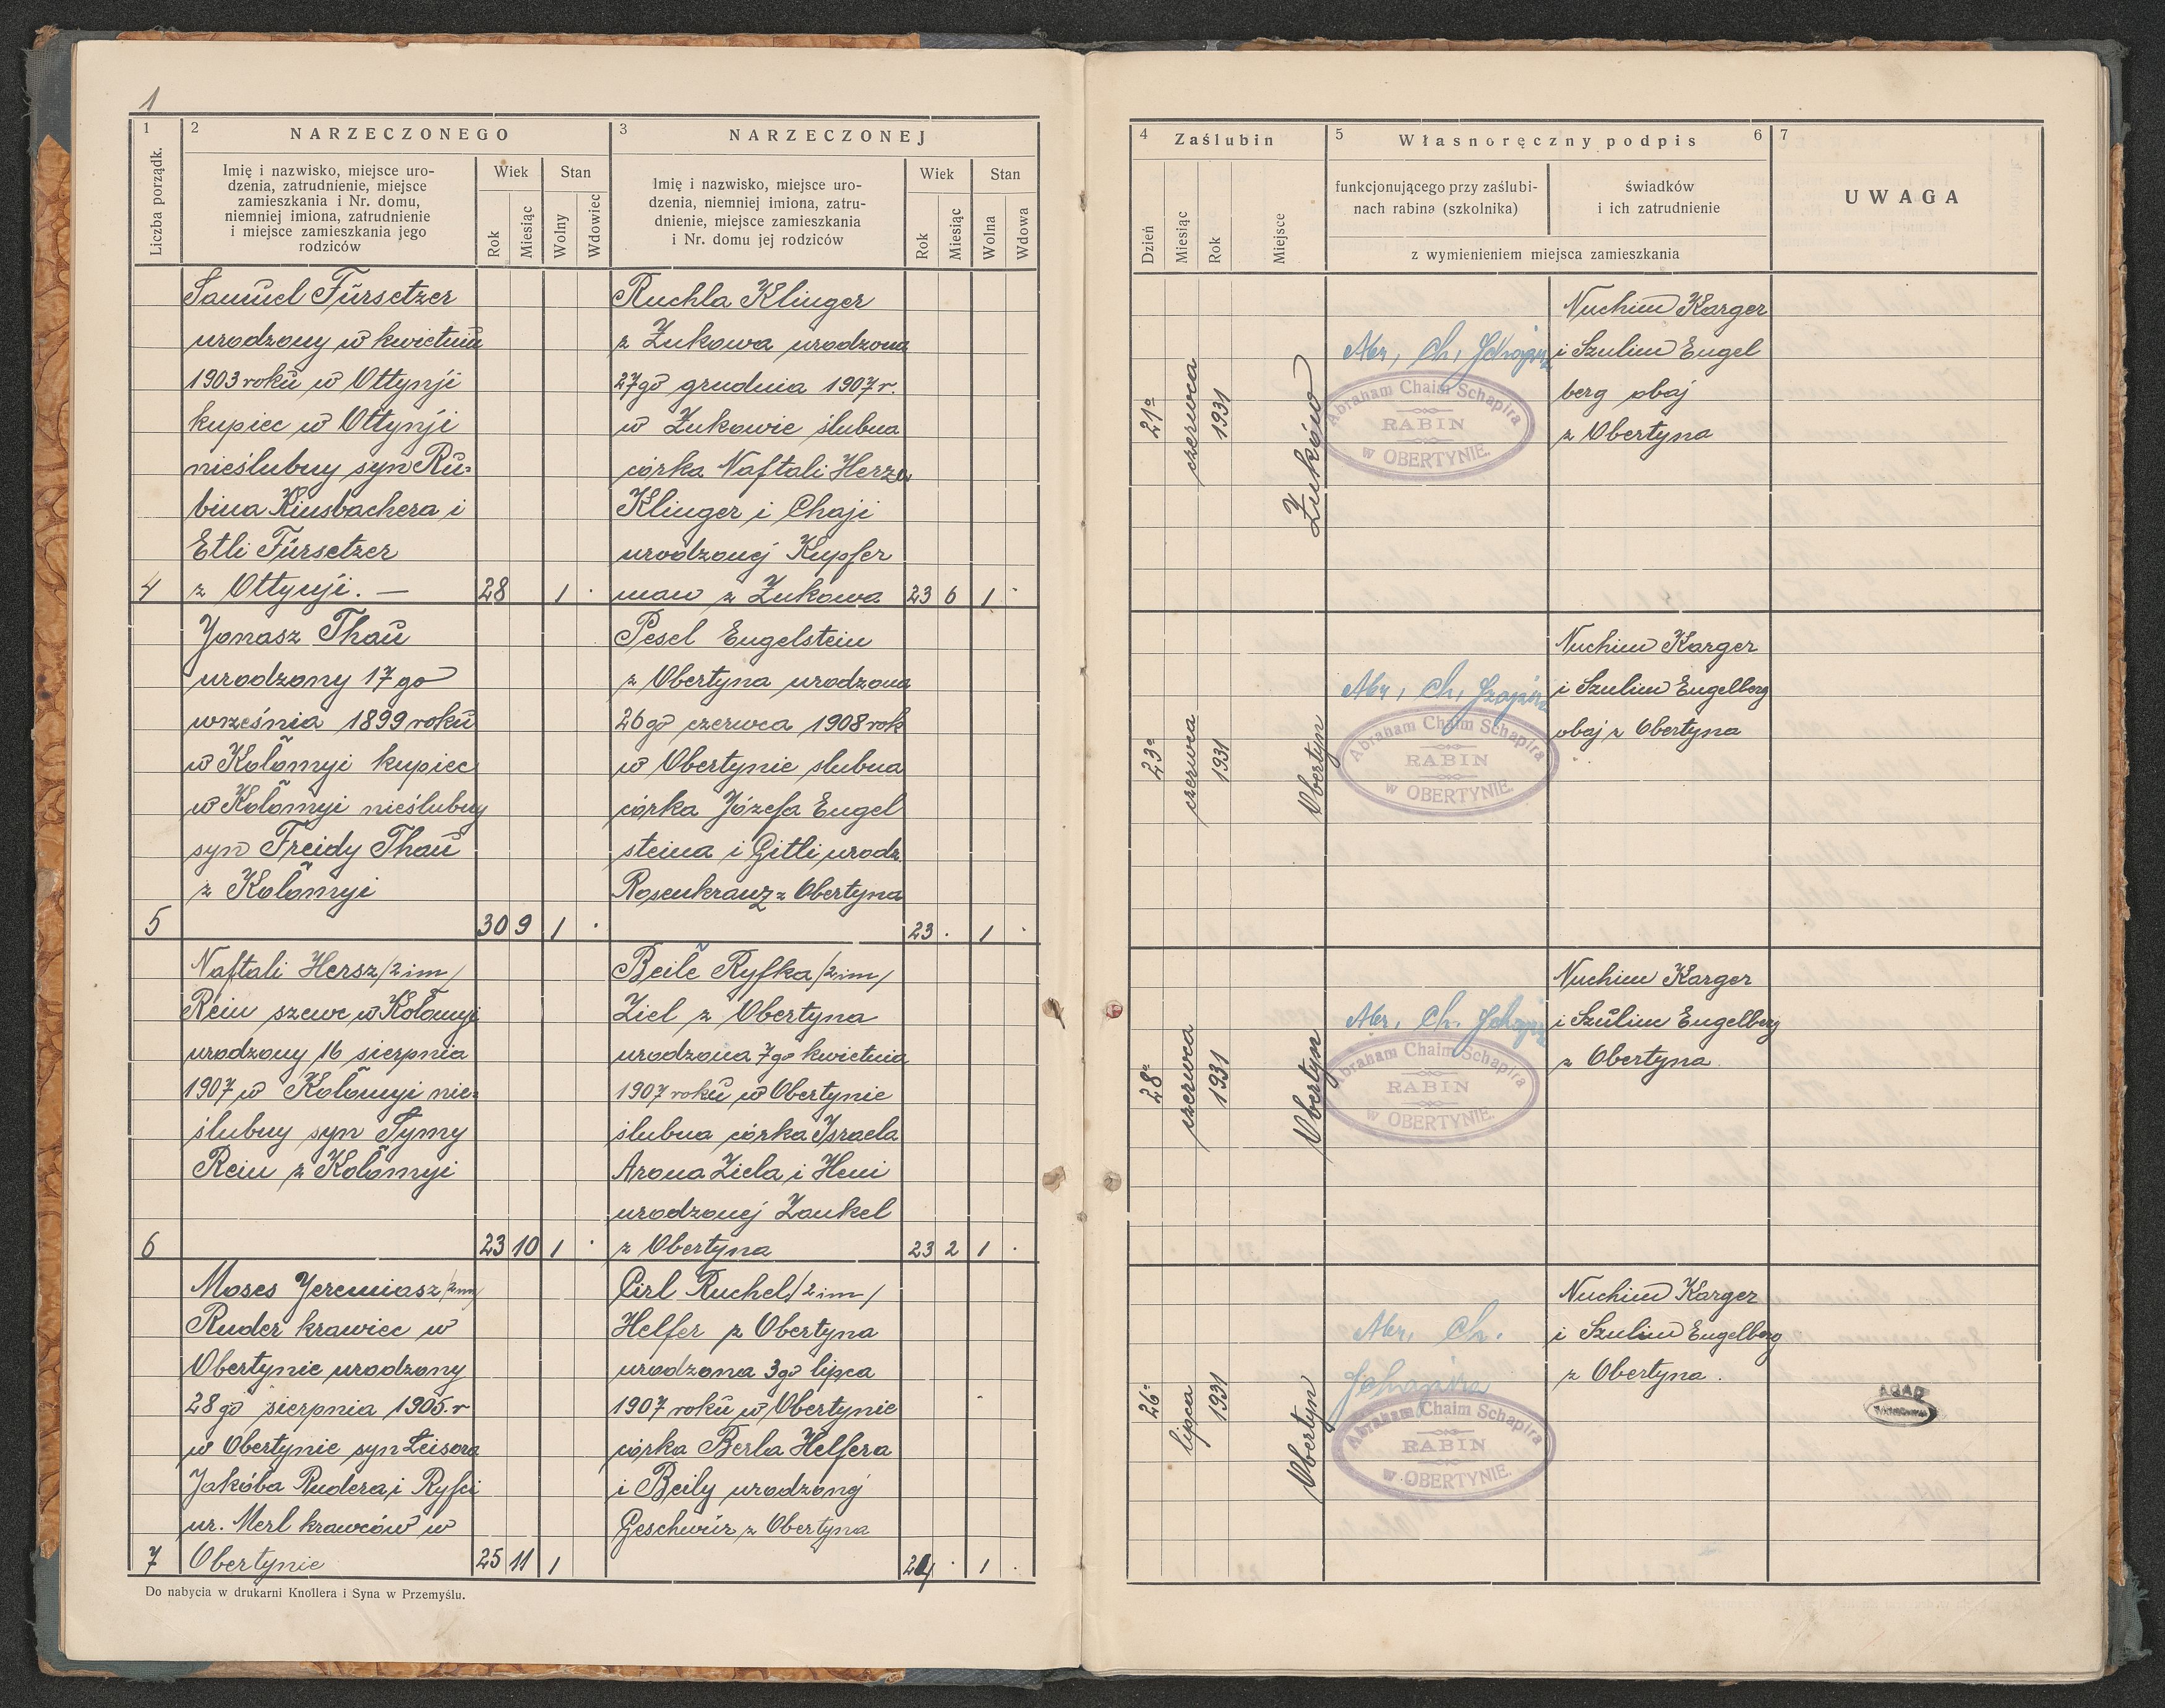 1
1
2
NARZECZONEGO
3
NARZECZONEJ
Liczba porządk.
Imię i nazwisko, miejsce uro-
dzenia, zatrudnienie, miejsce
zamieszkania i Nr. domu,
niemniej imiona, zatrudnienie
i miejsce zamieszkania jego
rodziców
Wiek
Stan
Rok
Miesiąc
Wolny
Wdowiec
Imię i nazwisko, miejsce uro-
dzenia, niemniej imiona, zatru-
dnienie, miejsce zamieszkania
i Nr. domu jej rodziców
Wiek
Stan
Rok
Miesiąc
Wolna
Wdowa
Samuel Fürsetzer
urodzony w kwietniu
1903 roku w Ottynji
kupiec w Ottynji
nieślubny syn Ru-
bina Kinsbachera i
Etli Fürsetzer
4 z Ottynji. — 28 1 .
Ruchla Klinger
z Żukowa urodzona
27go grudnia 1907 r.
w Żukowie ślubna
córka Naftali Herza
Klinger i Chaji
urodzonej Kupfer
man z Żukowa 23 6 1 .
Jonasz Thau
urodzony 17 go
września 1899 roku
w Kołomyi kupiec
w Kołomyi nieślubny
syn Freidy Thau
z Kołomyi
5 30 9 1 .
Pesel Engelstein
z Obertyna urodzona
26go czerwca 1908 rok
w Obertynie ślubna
córka Józefa Engel
steina i Gitli urodz.
Rosenkranz z Obertyna
23 . 1 .
Naftali Hersz /2 im/
Rein szewc w Kołomyi
urodzony 16 sierpnia
1907 w Kołomyi nie-
ślubny syn Symy
Rein z Kołomyi
6 23 10 1 .
Beile Ryfka /2 im/
Ziel z Obertyna
urodzona 7go kwietnia
1907 roku w Obertynie
ślubna córka Israela
Arona Ziela i Heni
urodzonej Zankel
z Obertyna 23 2 1 .
Moses Jeremiasz /2 im/
Ruder krawiec w
Obertynie urodzony
28go sierpnia 1905. r
w Obertynie syn Leisora
Jakóba Rudera i Ryfci
ur. Merl krawców w
7 Obertynie 25 11 1
Pirl Ruchel /2 im/
Helfer z Obertyna
urodzona 3go lipca
1907 roku w Obertynie
córka Berla Helfera
i Beily urodzonej
Geschwür z Obertyna
24 . 1 .
Do nabycia w drukarni Knollera i Syna w Przemyślu.
4
Zaślubin
5
Własnoręczny podpis
6
7
Dzień
Miesiąc
Rok
Miejsce
funkcjonującego przy zaślubi-
nach rabina (szkolnika)
świadków
i ich zatrudnienie
z wymienieniem miejsca zamieszkania
UWAGA
21o
czerwca
1931
Żuków
Abr, Ch, Schapira
Abraham Chaim Schapira
RABIN
w OBERTYNIE.
Nuchim Karger
i Szulim Engel
berg obaj
z Obertyna
23o
czerwca
1931
Obertyn
Abr, Ch, Szapira
Abraham Chaim Schapira
RABIN
w OBERTYNIE.
Nuchim Karger
i Szulim Engelberg
obaj z Obertyna
28o
czerwca
1931
Obertyn
Abr, Ch. Schapira
Abraham Chaim Schapira
RABIN
w OBERTYNIE.
Nuchim Karger
i Szulim Engelberg
z Obertyna
26o
lipca
1931
Obertyn
Abr, Ch.
Schapira
Abraham Chaim Schapira
RABIN
w OBERTYNIE.
Nuchim Karger
i Szulim Engelberg
z Obertyna.
AGAD